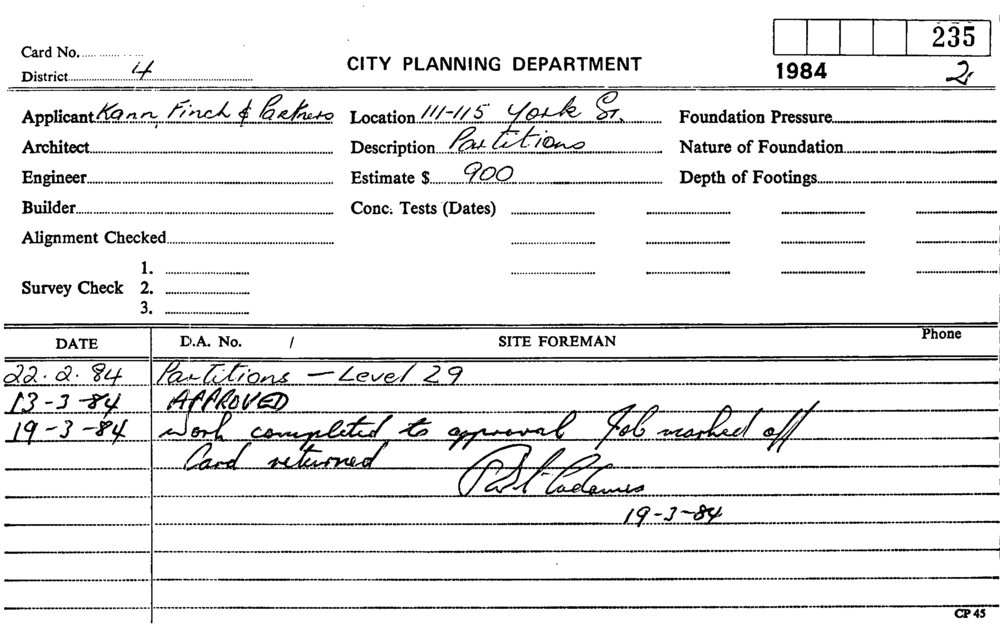 235
Card No.
CITY PLANNING DEPARTMENT
District 4
1984 2
Applicant Kann, Finch & Partners Location 111-115 York St. Foundation Pressure
Architect Description Partitions Nature of Foundation
Engineer Estimate $ 900 Depth of Footings
Builder Conc. Tests (Dates)
Alignment Checked
1.
Survey Check 2.
3.
DATE D.A. No. / SITE FOREMAN Phone
22.2.84 Partitions - Level 29
13-3-84 APPROVED
19-3-84 Work completed to approval Job marked off
Card returned
19-3-84
CP 45